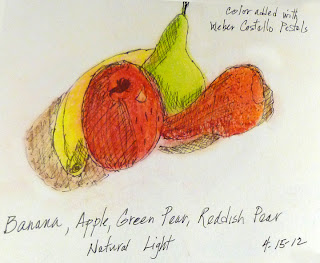 Color added with
Weber Costello Pastels
Banana, Apple, Green Pear, Reddish Pear
Natural Light
4-15-12